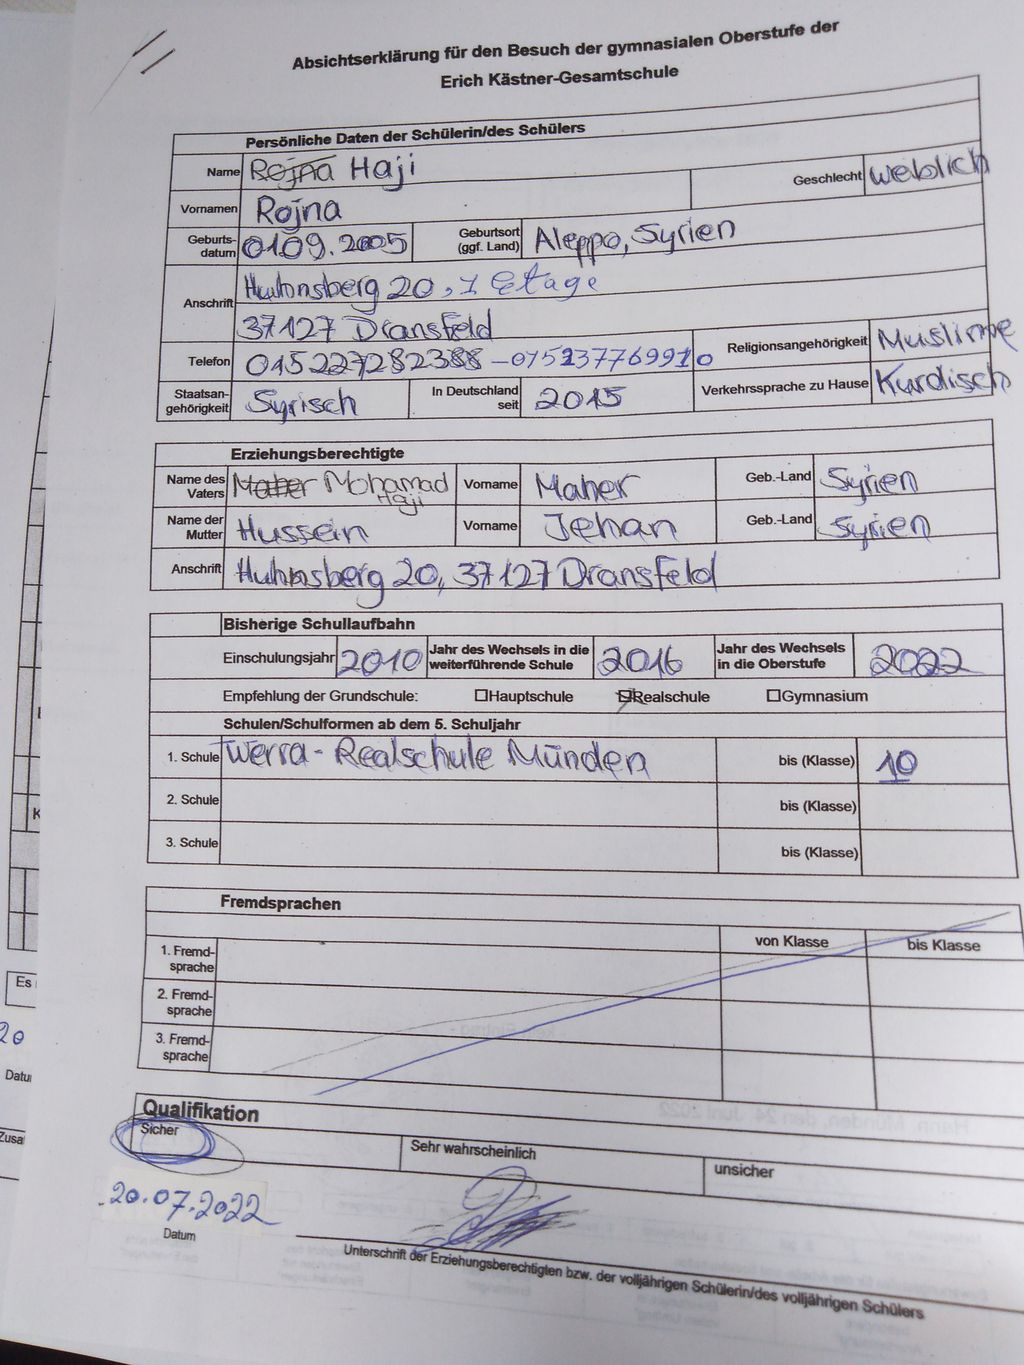 Absichtserklärung für den Besuch der gymnasialen Oberstufe der
Erich Kästner-Gesamtschule
Persönliche Daten der Schülerin/des Schülers
Name Rojna Haji Geschlecht weiblich
Vornamen Rojna
Geburts-datum 01.09.2005 Geburtsort (ggf. Land) Aleppo, Syrien
Anschrift Huhnsberg 20, 1 Etage
37127 Dransfeld
Telefon 015227282388 – 015237769910 Religionsangehörigkeit Muslime
Staatsan-gehörigkeit Syrisch In Deutschland seit 2015 Verkehrssprache zu Hause Kurdisch
Erziehungsberechtigte
Name des Vaters Maher Mohamad Haji Vorname Maher Geb.-Land Syrien
Name der Mutter Hussein Vorname Jehan Geb.-Land Syrien
Anschrift Huhnsberg 20, 37127 Dransfeld
Bisherige Schullaufbahn
Einschulungsjahr 2010 Jahr des Wechsels in die weiterführende Schule 2016 Jahr des Wechsels in die Oberstufe 2022
Empfehlung der Grundschule: Hauptschule Realschule Gymnasium
Schulen/Schulformen ab dem 5. Schuljahr
1. Schule Werra-Realschule Münden bis (Klasse) 10
2. Schule bis (Klasse)
3. Schule bis (Klasse)
Fremdsprachen
von Klasse bis Klasse
1. Fremd-sprache
2. Fremd-sprache
3. Fremd-sprache
Qualifikation
Sicher Sehr wahrscheinlich unsicher
20.07.2022
Datum
Unterschrift der Erziehungsberechtigten bzw. der volljährigen Schülerin/des volljährigen Schülers